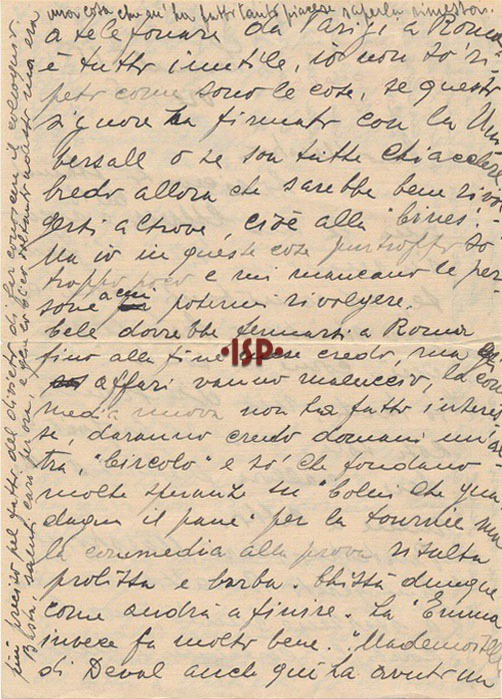 una cosa che m' ha fatto tanto piacere saperla
a telefonare da Parigi a Roma
è tutto inutile, io non so ri-
peto come sono le cose, se questo
signore ha firmato con la Un
versall o se son tutte chiacchere
credo allora che sarebbe bene rivol
gersi altrove, cioè alla "Cines".
Ma io in queste cose purtroppo so
troppo poco e mi mancano le per
sone a cui potermi rivolgere.
Cele dovrebbe fermarsi a Roma
fino alla fine credo, ma gli
affari vanno maluccio, la com
media nuova non ha fatto interes
se, daranno credo domani un'al
tra, "Circolo" e so' che fondano
molte speranze su "Colui che gua
dagna il pane" per la tournée ma
la commedia alla prova risulta
prolissa e barba. Chissà dunque
come andrà a finire. La "Emma"
invece fa molto bene. "Mademoiselle"
di Deval anche qui ha avuto un
•ISP•
più preciso pel fatto del divieto di far conoscere il colloquio.
Basta, saluti cari per ora, e